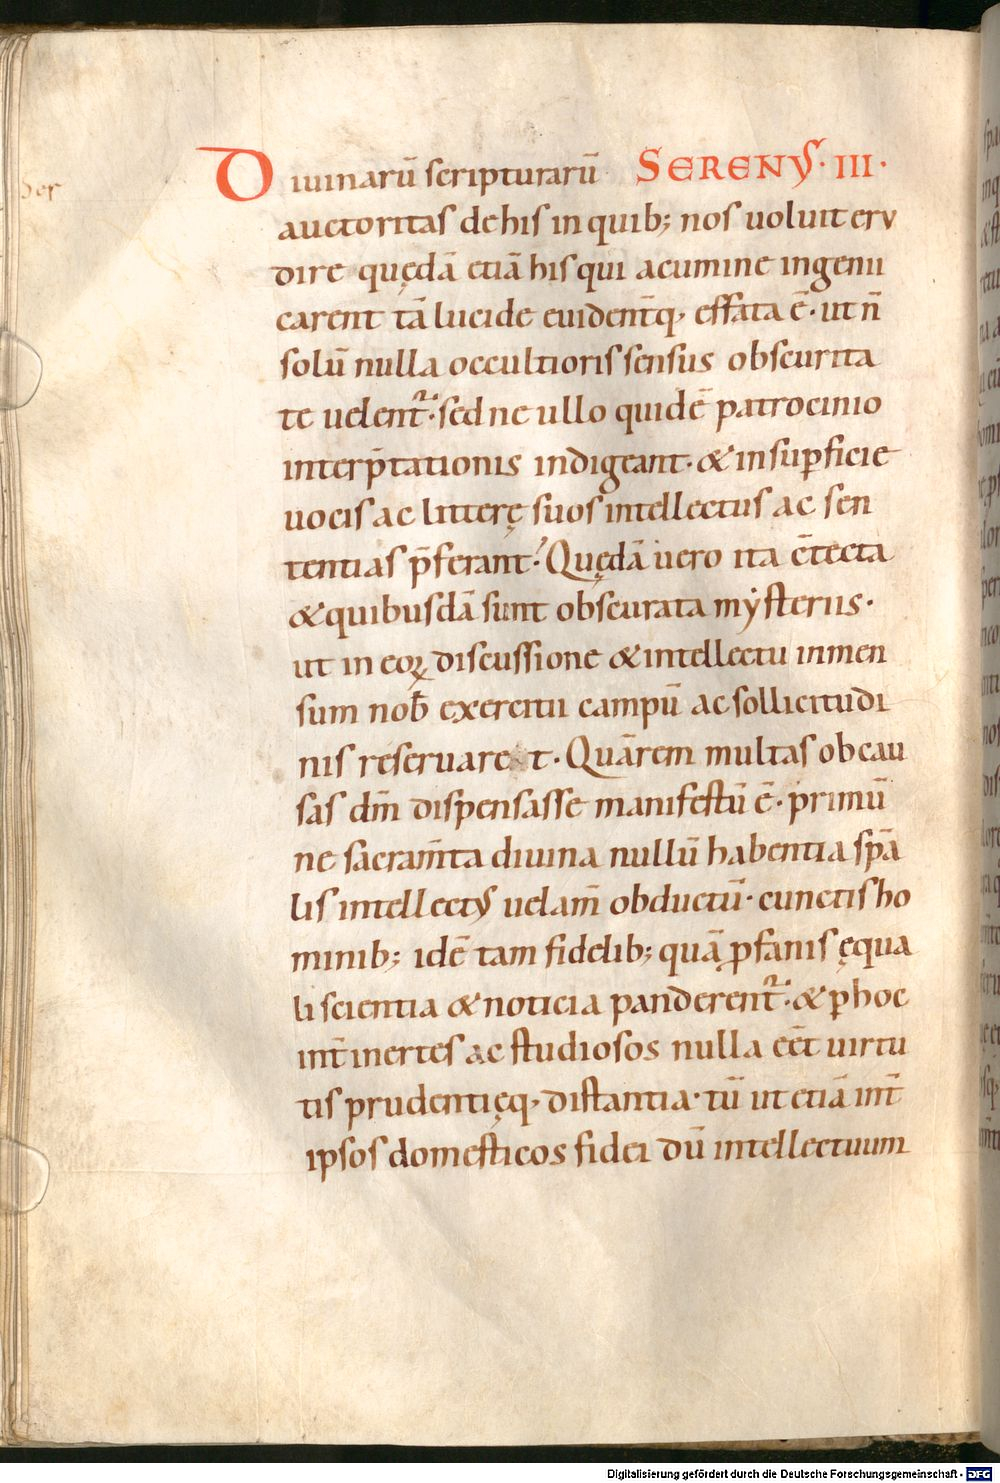 Ser
Diuinarū scripturarū SERENVS· III·
auctoritas de his in quib; nos uoluit eru
dire quędā etiā his qui acumine ingenii
carent tā lucide euident̄q, effata ē· ut ñ
solū nulla occultioris sensus obscurita
te uelent᷑· sed ne ullo quidē patrocinio
interp̄tationis indigeant· & in sup̱ficie
uocis ac litterę suos intellectus ac sen
tentias p̄ferant· Quędā uero ita c̄tecta
& quibusdā sunt obscurata mẏsteriis·
ut in eoꝝ discussione & intellectu inmen
sum nob̄ exercitii campū ac sollicitudi
nis reseruare t· Quā rem multas ob cau
sas dm̄ dispensasse manifestū ē· primū
ne sacram̄ta diuina nullū habentia sp̄a
lis intellectus uelam̄ obductū· cunctis ho
minib; idē tam fidelib; quā ꝓfanis ęqua
li scientia & noticia panderent᷑· & p̱ hoc
int̄ inertes ac studiosos nulla eēt uirtu
tis prudentięq, distantia· tū ut etiā int̄
ipsos domesticos fidei dū intellectuum
Digitalisierung gefördert durch die Deutsche Forschungsgemeinschaft - DFG